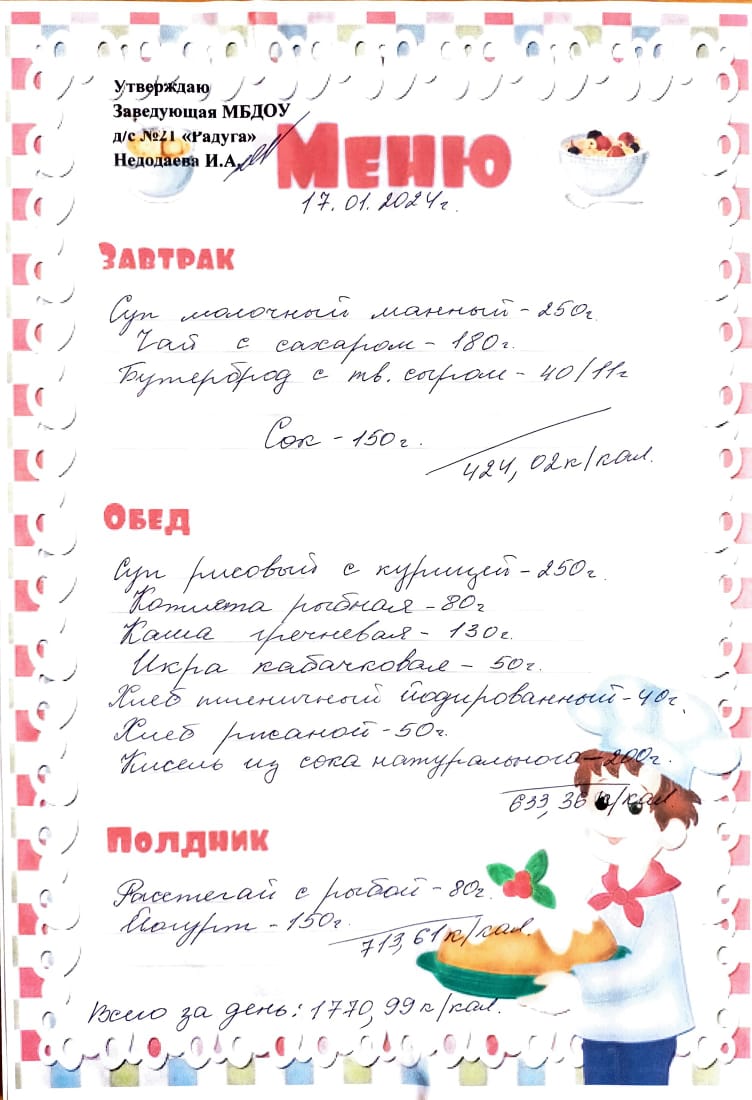 Утверждаю
Заведующая МБДОУ
д/с №21 «Радуга»
Недодаева И.А.
Меню
17.01.2024г.
Завтрак
Суп молочный манный - 250г.
Чай с сахаром - 180г.
Бутерброд с тв. сыром - 40/11г
Сок - 150г.
424,02к/кал.
Обед
Суп рисовый с курицей - 250г.
Котлета рыбная - 80г
Каша гречневая - 130г.
Икра кабачковая - 50г.
Хлеб пшеничный йодированный - 40г.
Хлеб ржаной - 50г.
Кисель из сока натурального - 200г.
633,36 к/кал.
Полдник
Расстегай с рыбой - 80г.
Йогурт - 150г.
713,61к/кал.
Всего за день: 1770,99 к/кал.